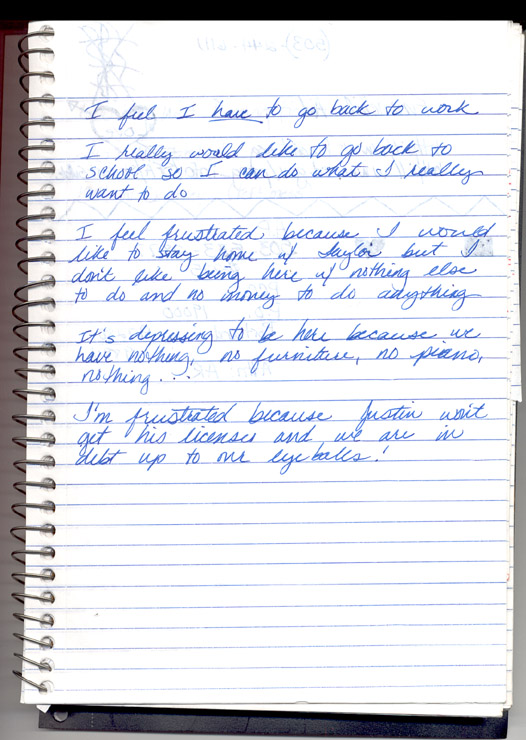 I feel I have to go back to work
I really would like to go back to
school so I can do what I really
want to do
I feel frustrated because I would
like to stay home w/ Taylor but I
don't like being here w/ nothing else
to do and no money to do anything
It's depressing to be here because we
have nothing, no furniture, no piano,
nothing...
I'm frustrated because Justin won't
get his licenses and we are in
debt up to our eye balls!